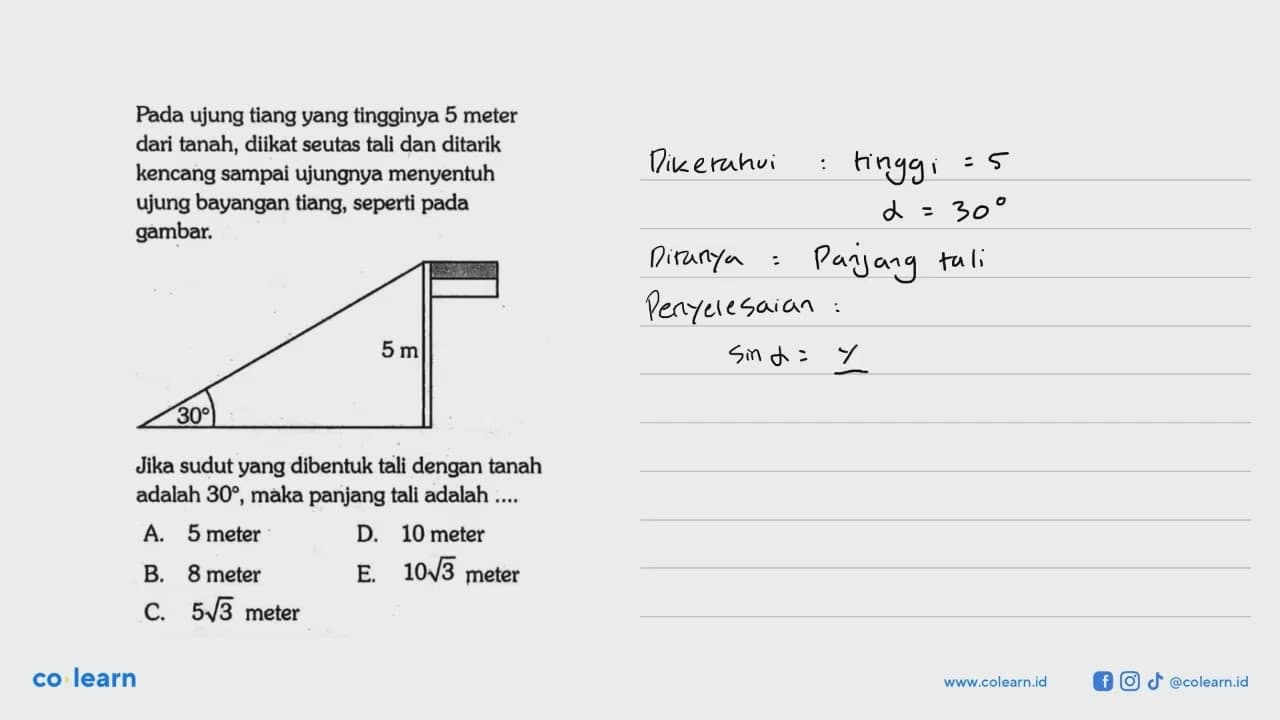 Pada ujung tiang yang tingginya 5 meter
dari tanah, diikat seutas tali dan ditarik
kencang sampai ujungnya menyentuh
ujung bayangan tiang, seperti pada
gambar.
5 m
30°
Jika sudut yang dibentuk tali dengan tanah
adalah 30°, maka panjang tali adalah ....
A. 5 meter
D. 10 meter
B. 8 meter
E. 10√3 meter
C. 5√3 meter
Diketahui : tinggi = 5
α = 30°
Ditanya : Panjang tali
Penyelesaian :
sin α = y
co learn
www.colearn.id
@colearn.id